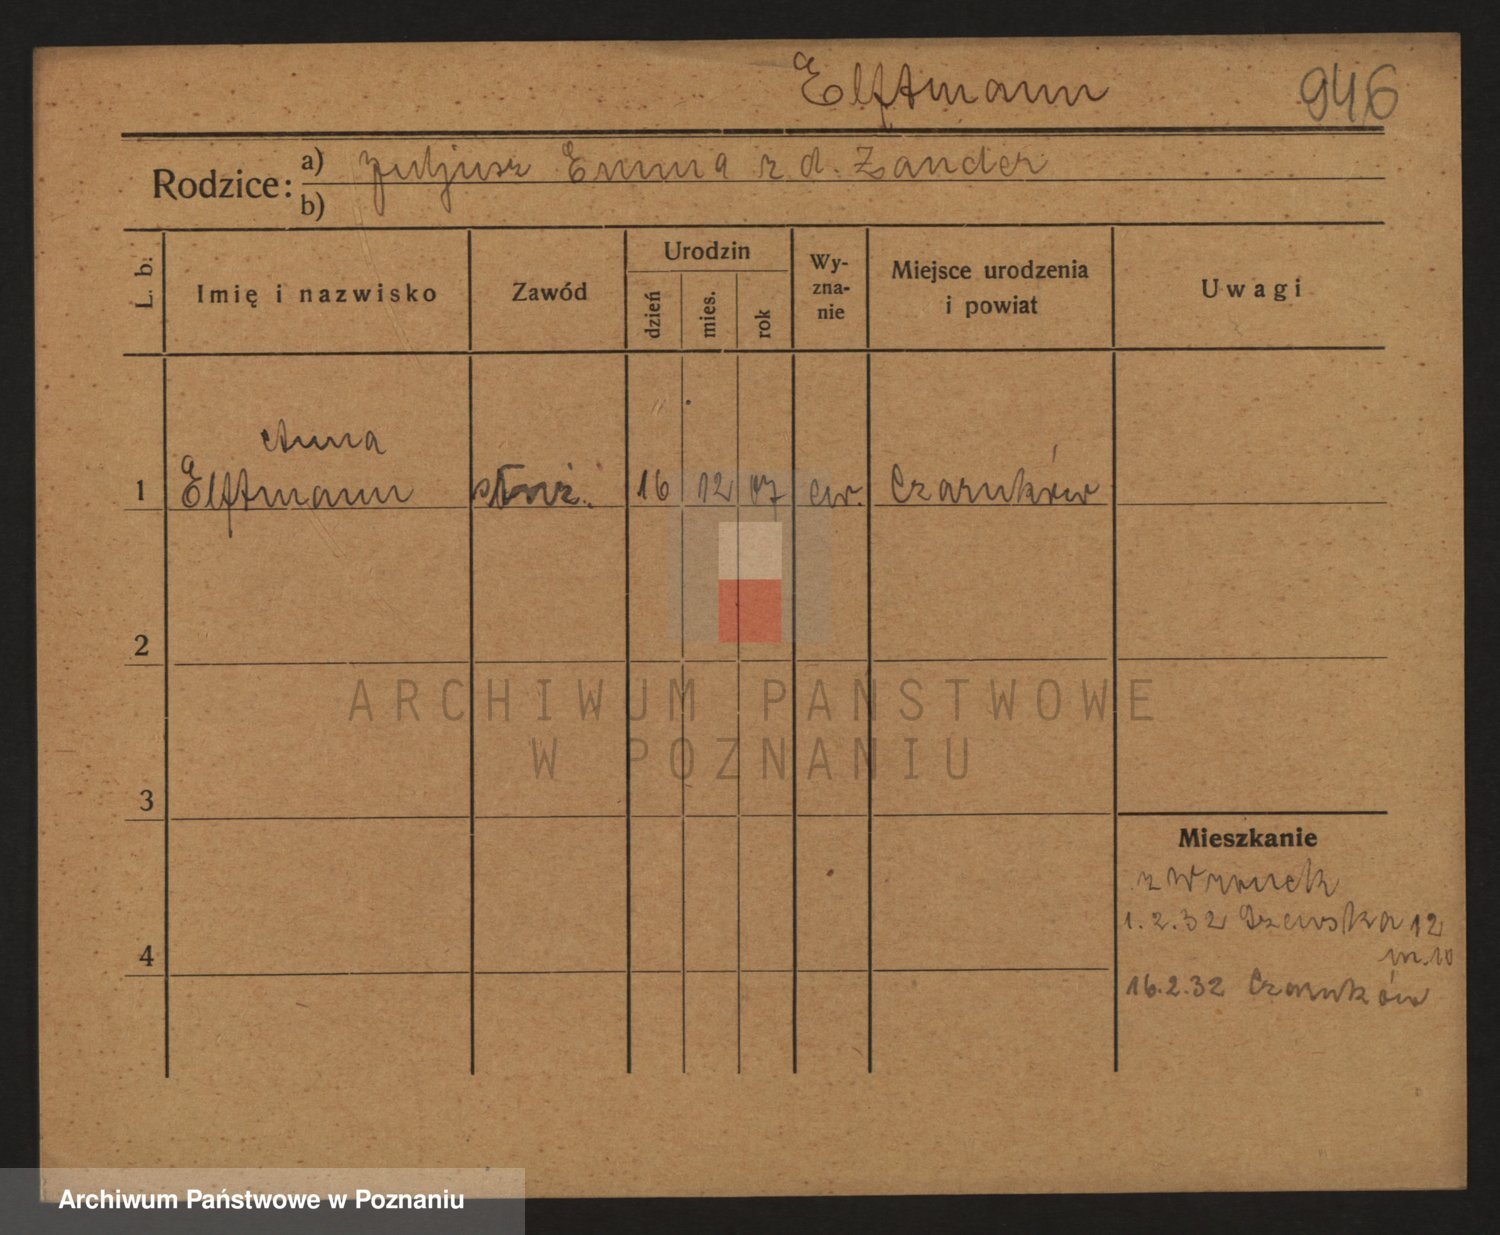 Elftmann 946
Rodzice:
a) Juljusz Emma z d. Zander
b)
L. b.
Imię i nazwisko
Zawód
Urodzin
dzień
mies.
rok
Wy-
zna-
nie
Miejsce urodzenia
i powiat
Uwagi
Anna
1 Elftmann służ. 16 12 07 ew. Czarnków
2
3
4
ARCHIWUM PAŃSTWOWE
W POZNANIU
Mieszkanie
z Wronek
1.2.32 Szewska 12
m. 10
16.2.32 Czarnków
Archiwum Państwowe w Poznaniu